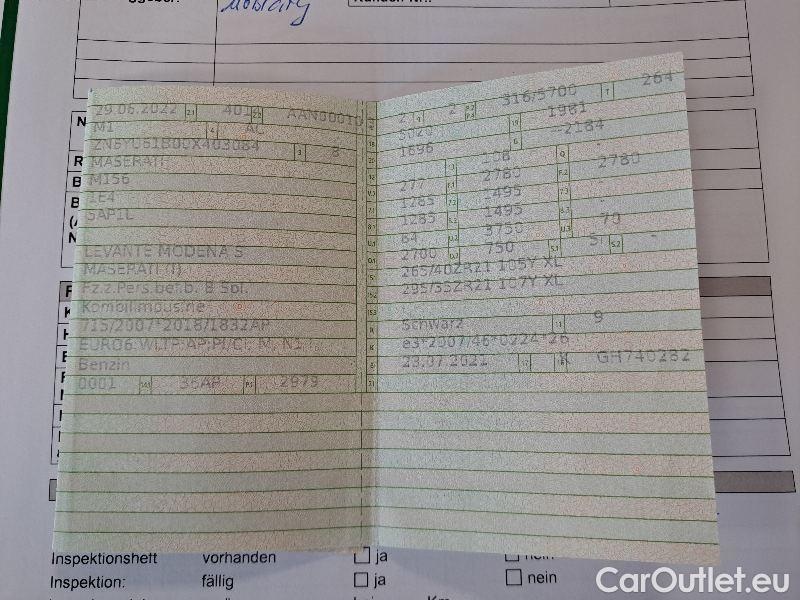 Mobility
Kunden-Nr.:
29.06.2022 2.1 401 2.2 AAN00010 2
M1 4 AC
ZN6YU61B00X403084 3 8
MASERATI
M156
1E4
5AP1L
LEVANTE MODENA S
MASERATI (I)
Fz.z.Pers.bef.b. 8 Spl.
Kombilimousine
715/2007*2018/1832AP
EURO6;WLTP;AP;PI/CI; M, N1 I
Benzin
0001 14.1 36AP P.1 2979
2 9 2 P.2 P.4 316/5700 T 264
5020 19 1981
1696 G --2184
13 108 Q -
277 F.1 2780 F.2 2780
1285 7.2 1495 7.3 -
1285 8.2 1495 8.3 -
64 U.2 3750 U.3 70
2700 O.2 750 S.1 5 S.2 -
265/40ZR21 105Y XL
295/35ZR21 107Y XL
Schwarz 11 9
e3*2007/46*0224*26
23.07.2021 17 K 16 GH740282
Inspektionsheft vorhanden ja nein
Inspektion: fällig ja nein
CarOutlet.eu